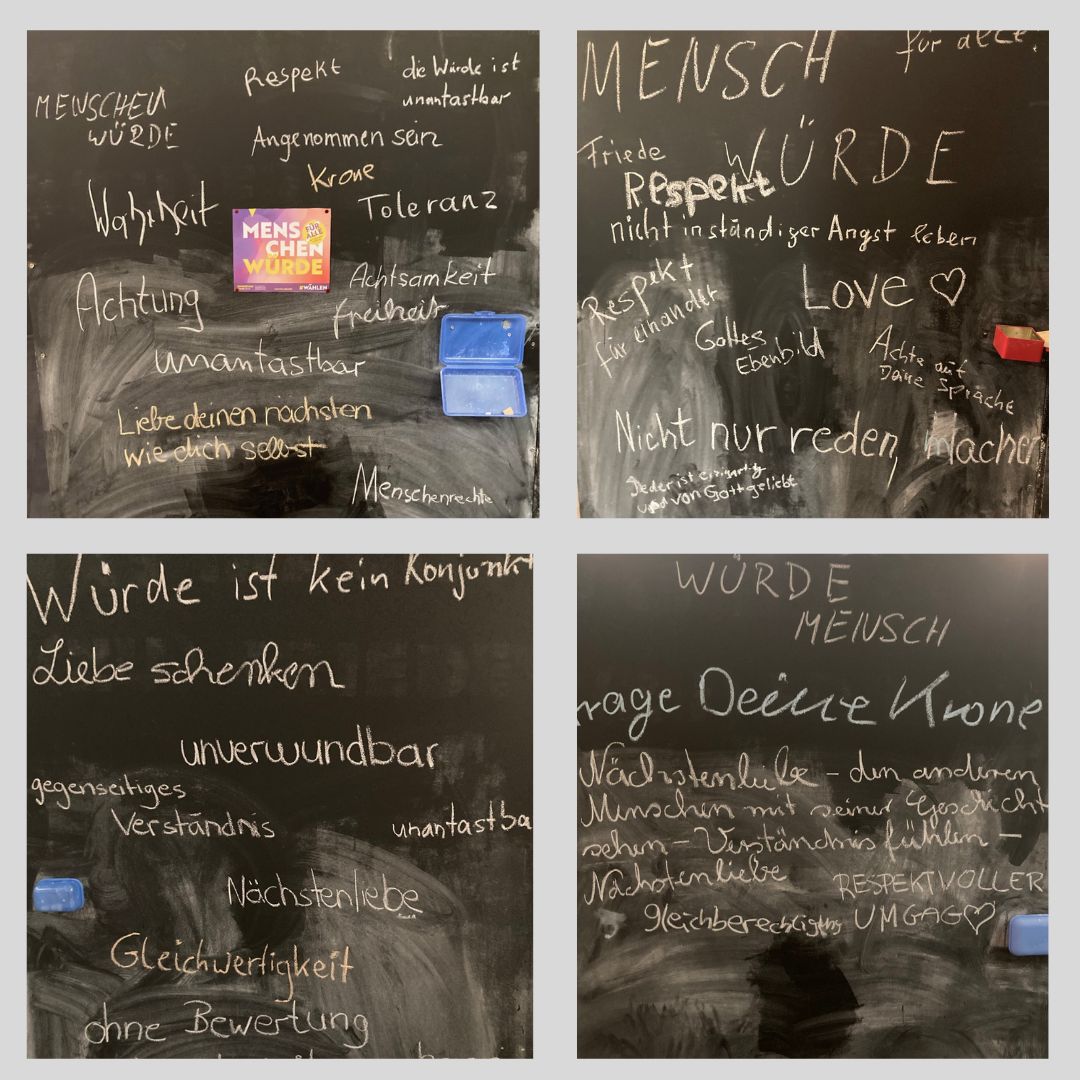 Respekt
die Würde ist
unantastbar
MENSCHEN
WÜRDE
Angenommen sein
Krone
Wahrheit
Toleranz
MENS
CHEN
WÜRDE
FÜR ALLE
#WÄHLEN
Achtung
Achtsamkeit
freiheit
unantastbar
Liebe deinen nächsten
wie dich selbst
Menschenrechte
MENSCH
für alle!
WÜRDE
Friede
Respekt
nicht in ständiger Angst leben
Respekt
für einander
Love ♡
Gottes
Ebenbild
Achte auf
Deine Sprache
Nicht nur reden, machen
Jeder ist einzigartig
und von Gott geliebt
Würde ist kein Konjunkt
Liebe schenken
unverwundbar
gegenseitiges
Verständnis
unantastba
Nächstenliebe
Gleichwertigkeit
ohne Bewertung
WÜRDE
MENSCH
rage Deine Krone
Nächstenliebe – den anderen
Menschen mit seiner Geschicht
sehen – Verständnis fühlen –
Nächstenliebe
RESPEKTVOLLER
UMGAG♡